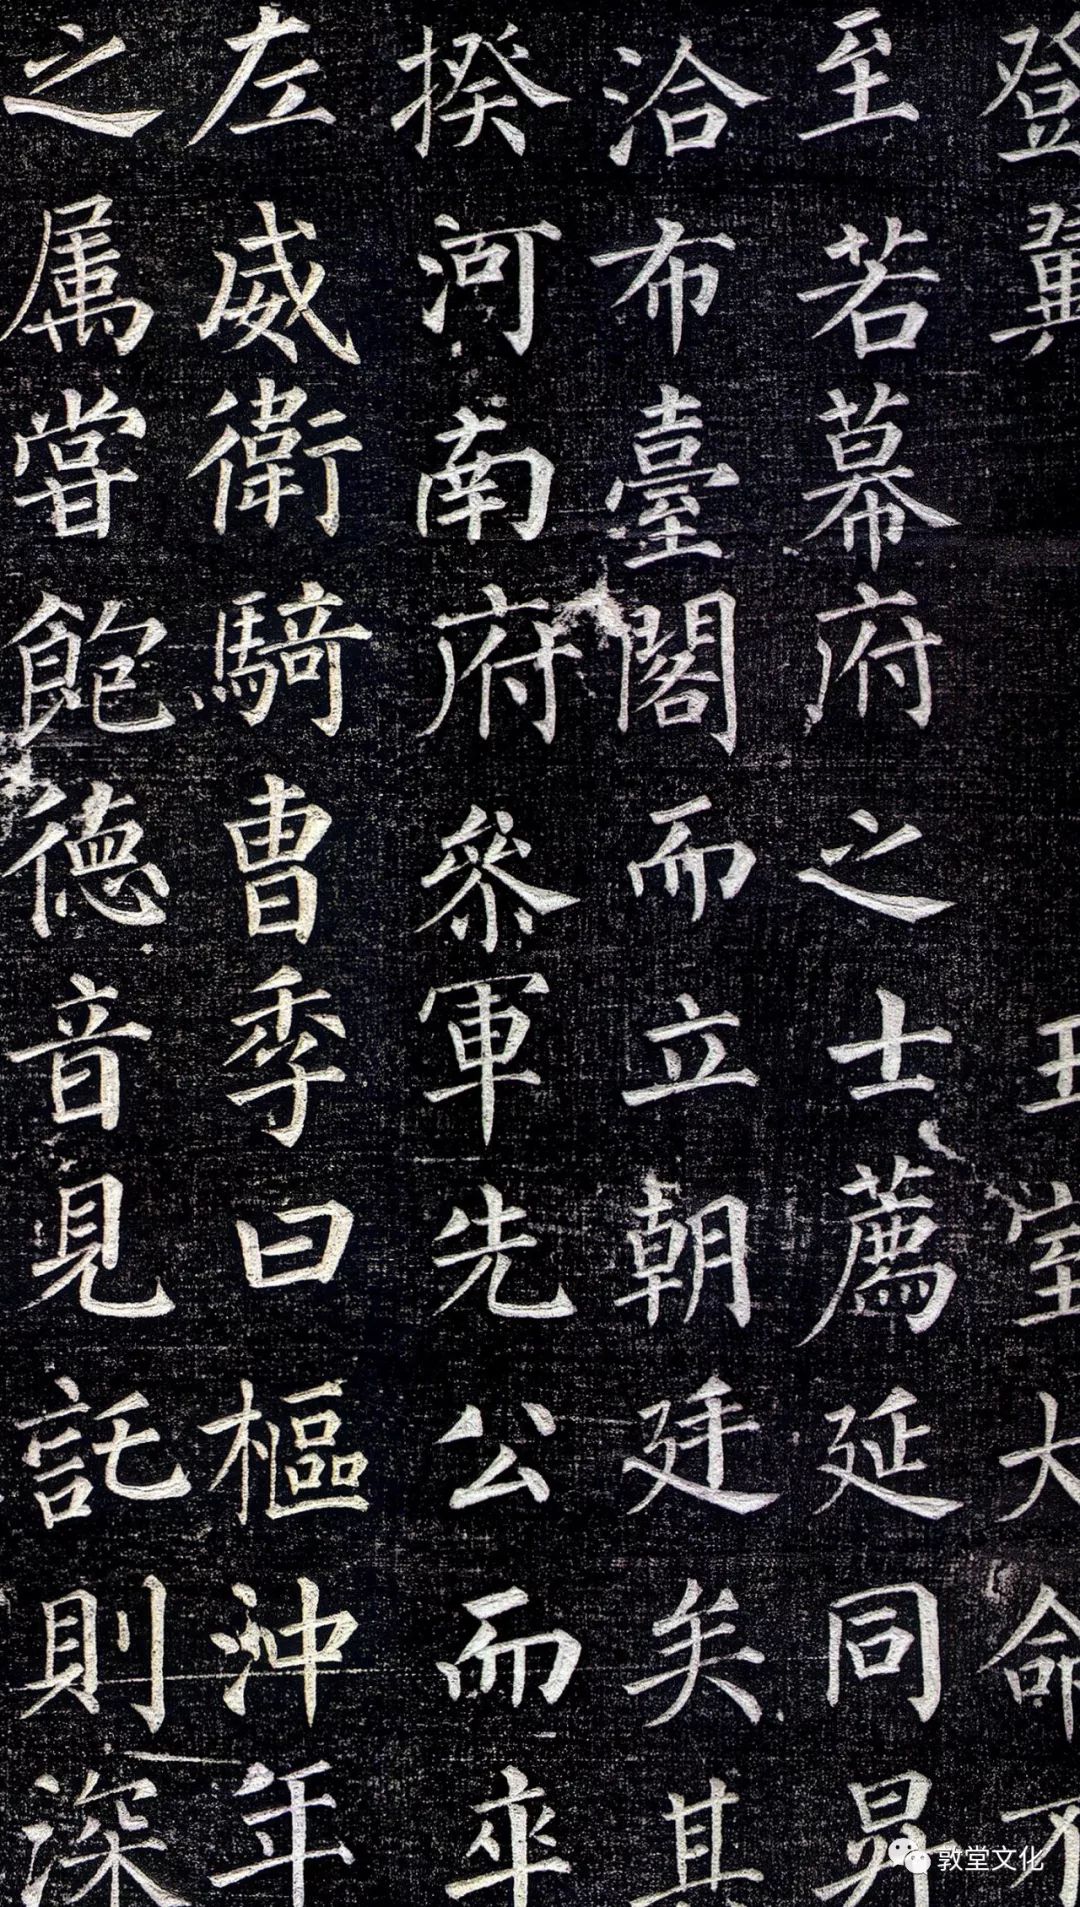 登翼 王室大命不
至若幕府之士薦延同昇
洽布臺閣而立朝廷矣其
揆河南府參軍先公而卒
左威衛騎曹季曰樞沖年
之属嘗飽德音見託則深
敦堂文化